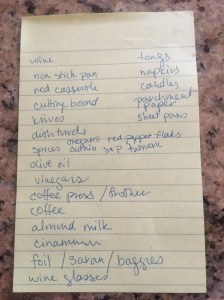 wine
non stick pan
red casserole
cutting board
knives
dish towels
spices oregano red pepper flakes
cumin s+p turmeric
olive oil
vinegars
coffee press / frother
coffee
almond milk
cinammon
foil / saran / baggies
wine glasses
tongs
napkins
candles
parchment
paper
sheet pans